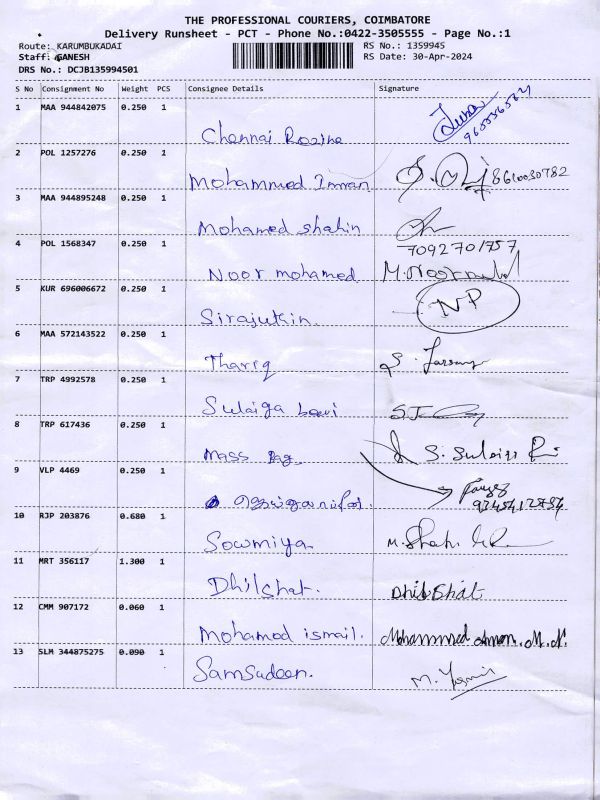 THE PROFESSIONAL COURIERS, COIMBATORE
Delivery Runsheet - PCT - Phone No.:0422-3505555 - Page No.:1
Route: KARUMBUKADAI RS No.: 1359945
Staff: GANESH RS Date: 30-Apr-2024
DRS No.: DCJB135994501
S No Consignment No Weight PCS Consignee Details Signature
1 MAA 944842075 0.250 1
Chennai
2 POL 1257276 0.250 1
Mohammed Imran 8610030782
3 MAA 944895248 0.250 1
Mohamed shahin
4 POL 1568347 0.250 1 7092701757
Noor mohamed M. Noor
5 KUR 696006672 0.250 1 NP
Sirajutkin.
6 MAA 572143522 0.250 1
Thariq S.
7 TRP 4992578 0.250 1
Sulaiga
8 TRP 617436 0.250 1
Mass S.
9 VLP 4469 0.250 1
10 RJP 203876 0.680 1
Sowmiya M.
11 MRT 356117 1.300 1
Dhilshat. Dhilshat
12 CMM 907172 0.060 1
Mohamed ismail. Mohammed
13 SLM 344875275 0.090 1
Samsudeen. M. Yasmin